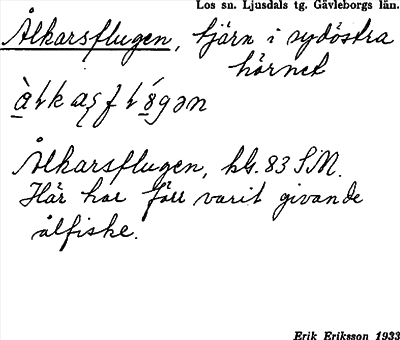 Los sn. Ljusdals tg. Gävleborgs län.
Ålkarsflugen, tjärn i sydöstra
hörnet
Ålkarsflugen, kbl. 83 SM.
Här har förr varit givande
ålfiske.
Erik Eriksson 1933